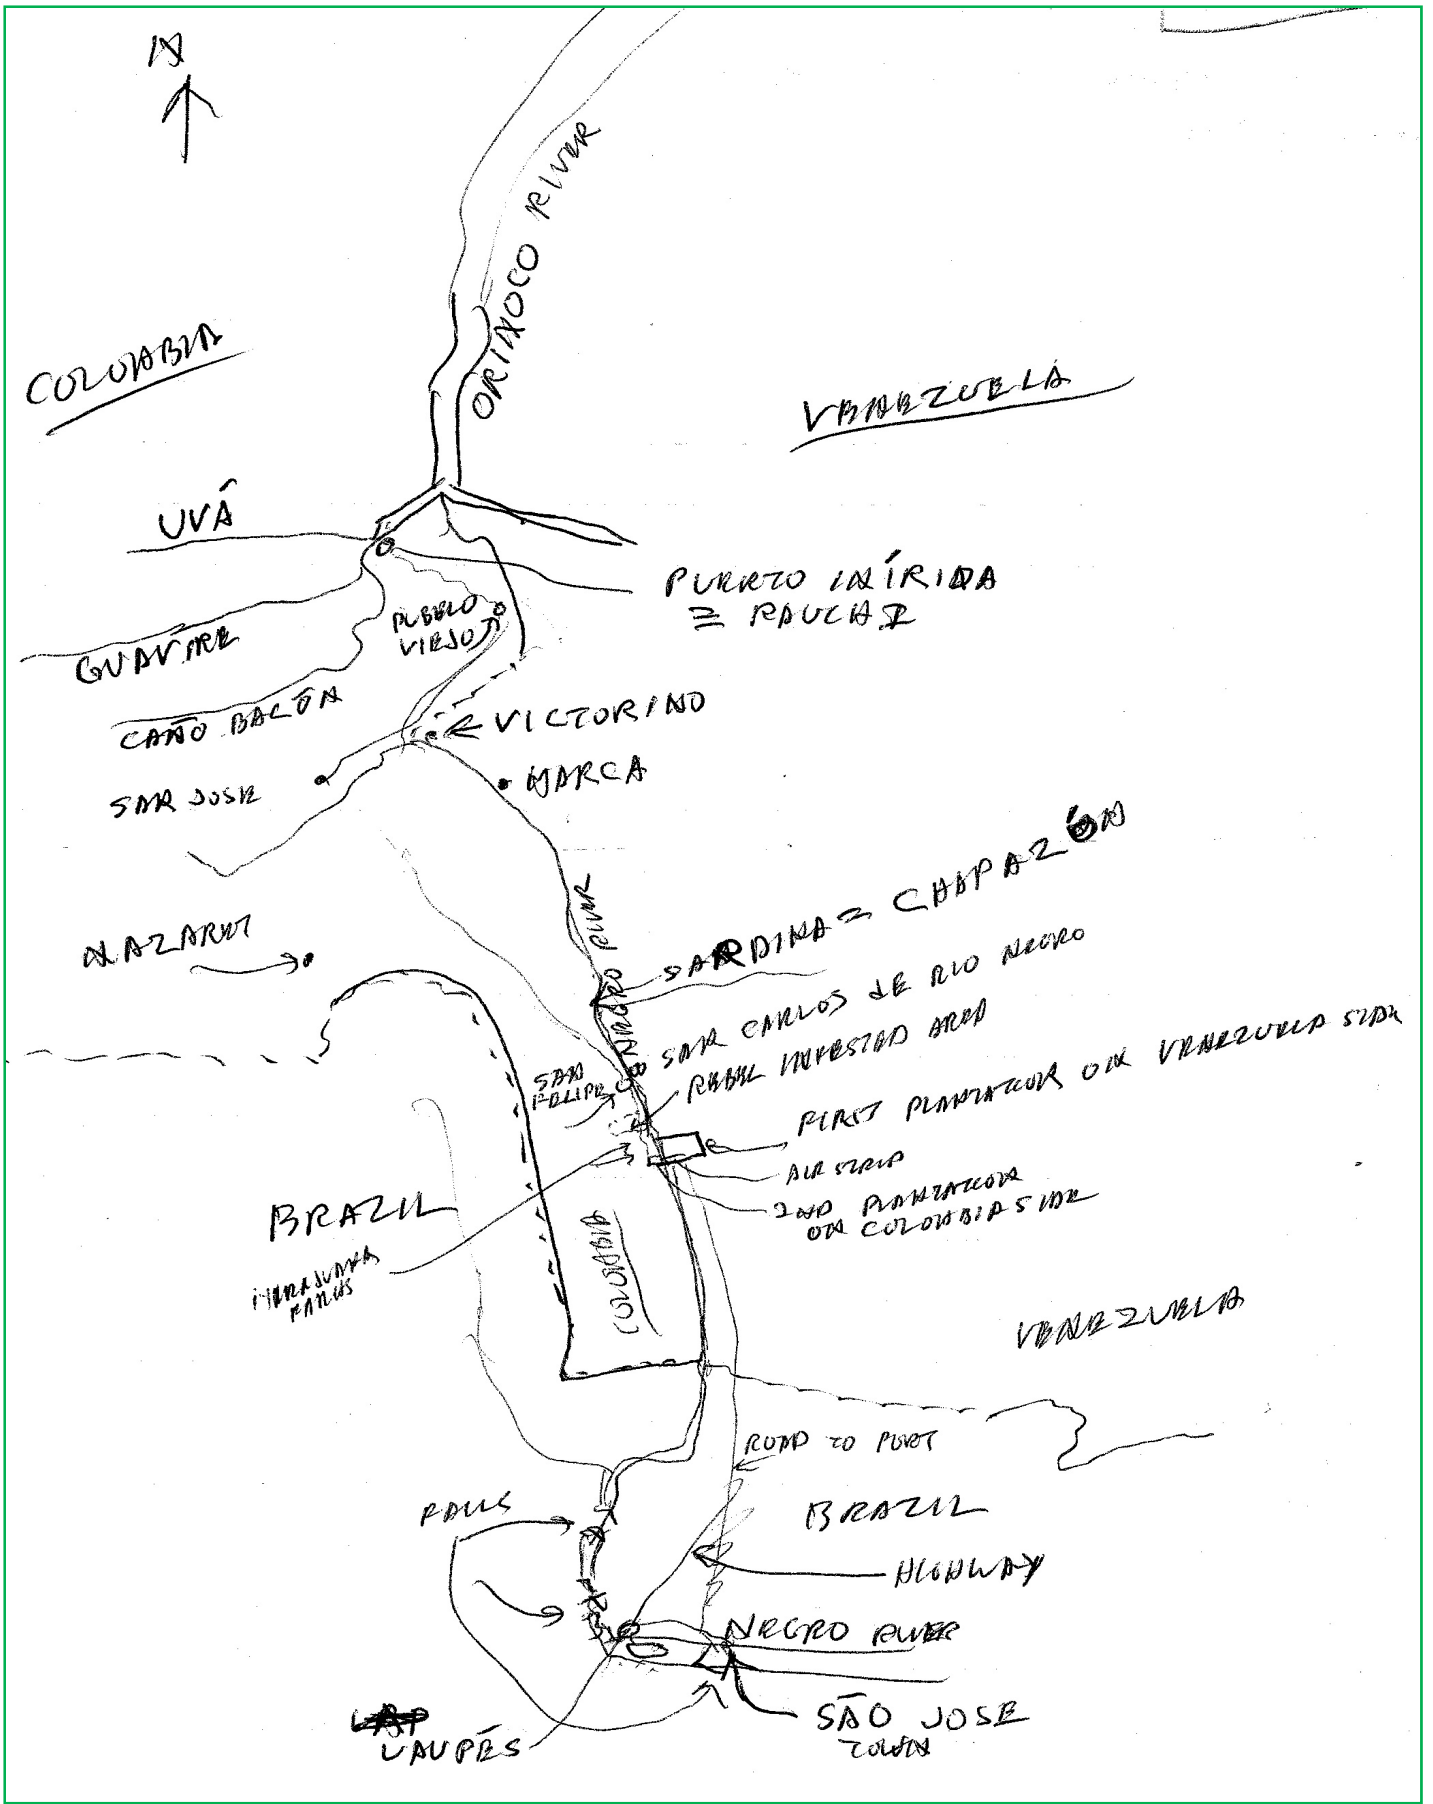 N
ORINOCO RIVER
COLOMBIA
VENEZUELA
UVÁ
PUERTO INÍRIDA
= RAUCHI
PUEBLO
VIEJO
GUAVIARE
CAÑO BACÓN
VICTORINO
SAN JOSE
MARCA
SARDINA = CHAPAZÓN
NAZARET
NEGRO RIVER
SAN CARLOS DE RIO NEGRO
SAN
FELIPE
REBEL INFESTED AREA
FIRST PLANTATION ON VENEZUELA SIDE
AIR STRIP
2ND PLANTATION
ON COLOMBIA SIDE
BRAZIL
COLOMBIA
MARAJUANA
FARMS
VENEZUELA
ROAD TO PORT
FALLS
BRAZIL
HIGHWAY
NEGRO RIVER
SÃO JOSE
TOWN
VAUPÉS